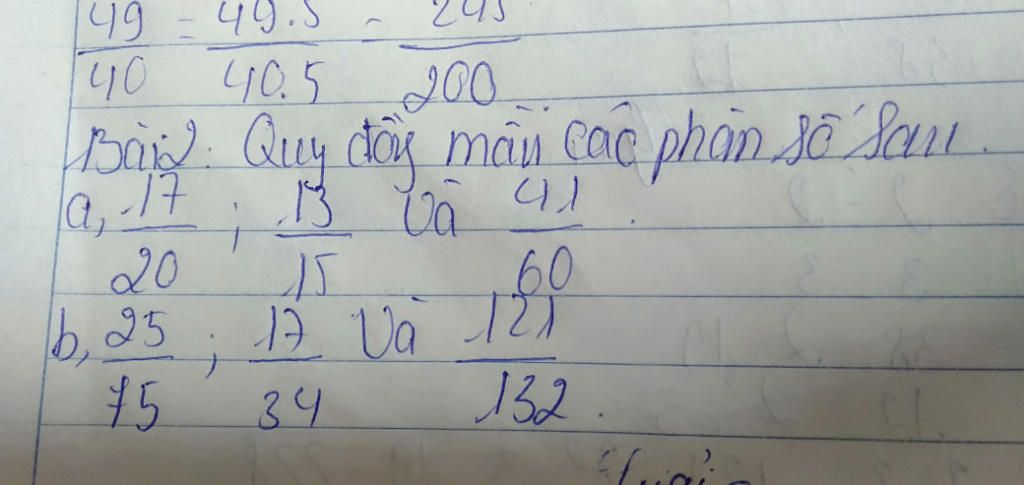 49/40 = 49.5/40.5 = 245/200
Bài 2: Quy đồng mẫu các phân số sau.
a, 17/20 ; 13/15 và 41/60.
b, 25/75 ; 17/34 và 121/132.